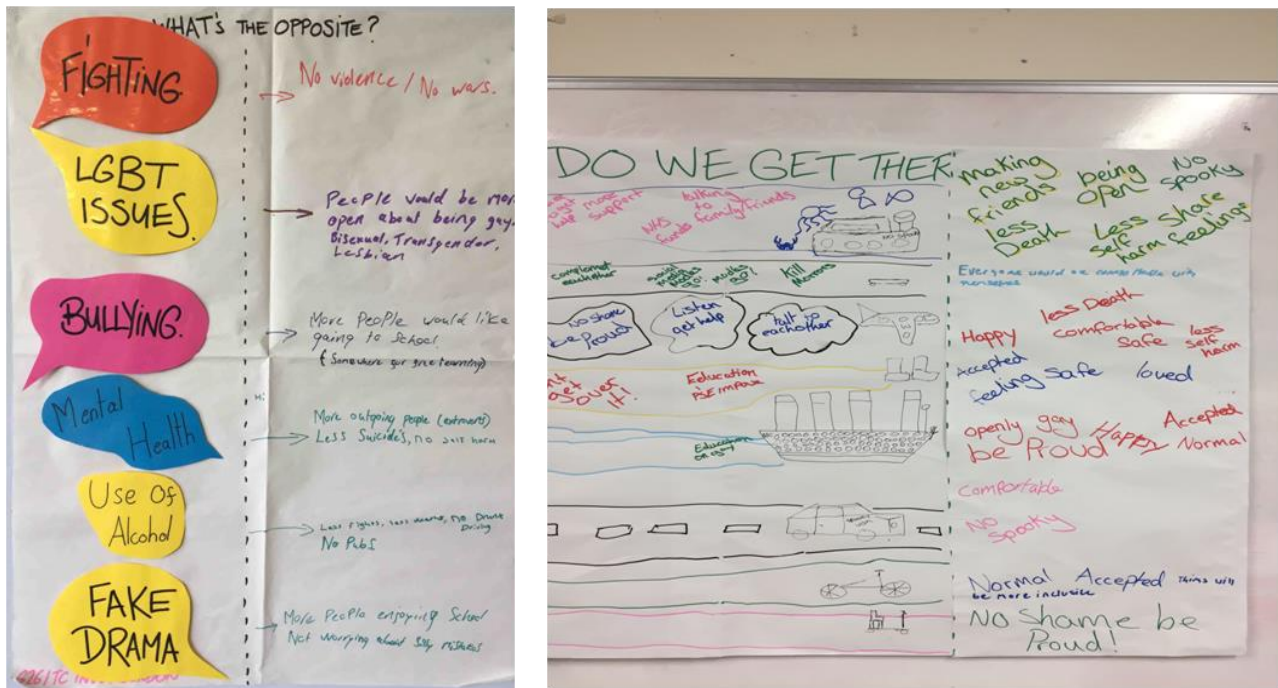 WHAT'S THE OPPOSITE?
FIGHTING.
No violence / No wars.
LGBT
ISSUES.
People would be mor
open about being gay.
Bisexual, Transgendor,
Lesbian
BULLYING.
More People would like
going to School
Mental
Health
Hi
More outgoing people (extroverts)
Less Suicide's, no self harm
Use Of
Alcohol
Less fights, less
Driving
No Pubs
FAKE
DRAMA
More People enjoying School
Not worrying about silly mistakes
DO WE GET THER
more
support
NHS
funds
talking
to
family/friends
complemet
eachother
social
media
Kill
Morons
No Shame
be Proud
Listen
get help
talk to
eachother
get
over
it!
Education
PSE improve
Education
making
new
friends
being
open
No
spooky
less
Death
Less
self
harm
share
feelings
Everyone would be comfortable with
themselves
Happy
less Death
comfortable
safe
less
self
harm
Accepted
feeling safe
loved
openly gay
be Proud
Happy
Accepted
Normal
Comfortable
No
spooky
Normal Accepted Things will
be more inclusive
No Shame be
Proud!